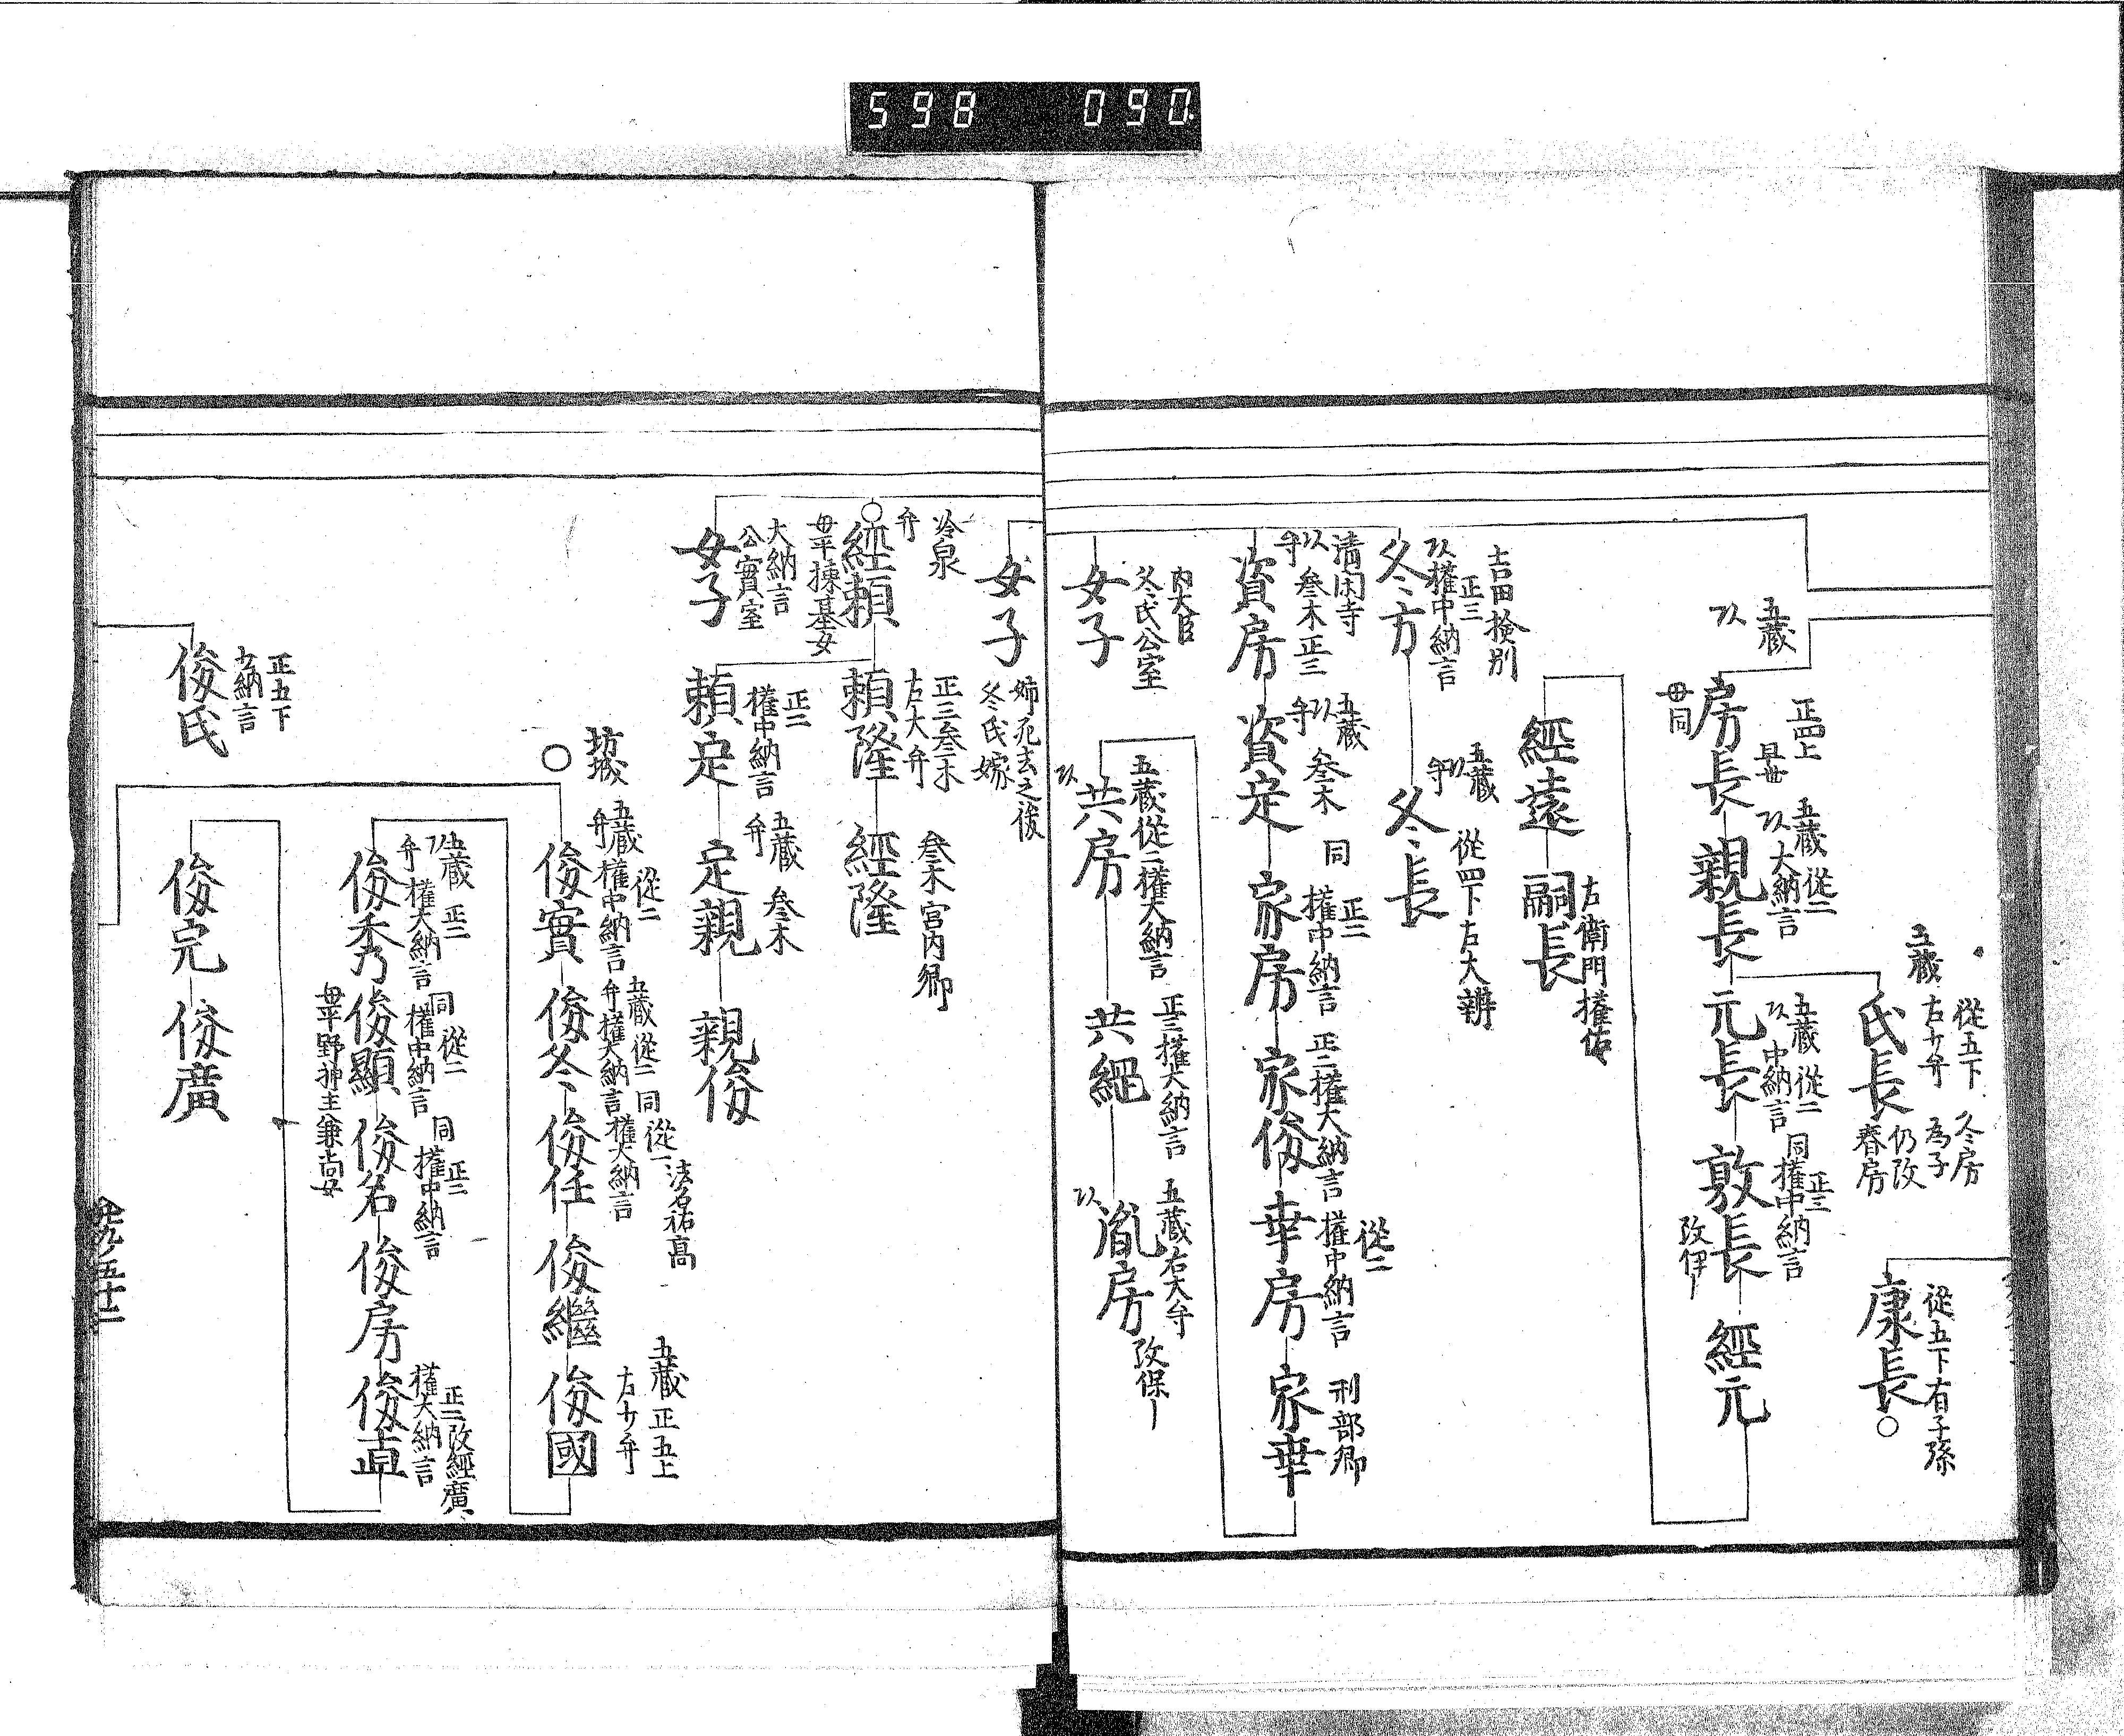 598 090
從五下有子孫
康長
五蔵
從五下
右少弁
冬房
為子
仍改
春房
氏長
五蔵
正四上
早世
房長
母同
五蔵 從二
大納言
親長
五蔵 從二
中納言
元長
同 正三
權中納言
敦長
改伊
經元
經遠
左衛門權佐
嗣長
吉田 掞別
正三
權中納言
冬方
五蔵
弁
從四下右大辨
冬長
清閑寺
弁 叅木正三
資房
五蔵
弁 叅木
資定
同 正二
權中納言
家房
正二權大納言
家俊
從二
權中納言
幸房
刑部卿
家幸
五蔵從二權大納言
共房
正二權大納言
共綱
五蔵右大弁
胤房
改保
内大臣
冬氏公室
女子
女子
姉死去之後
冬氏嫁
冷泉
弁
經頼
母平棟基女
正三叅木
右大弁
頼隆
叅木宮内卿
經隆
大納言
公實室
女子
正二
權中納言
頼定
五蔵 叅木
弁
定親
親俊
坊城
五蔵 從二
弁 權中納言
俊實
五蔵從二
弁權大納言
俊冬
同從一
權大納言
法名祐高
俊任
俊繼
五蔵 正五上
右少弁
俊國
五蔵 正二
弁 權大納言
俊秀
同從二
權中納言
母平野神主兼尚女
俊顯
同 正二
權中納言
俊名
俊房
正二改經廣
權大納言
俊直
俊完
俊廣
正五下
少納言
俊氏
五十二